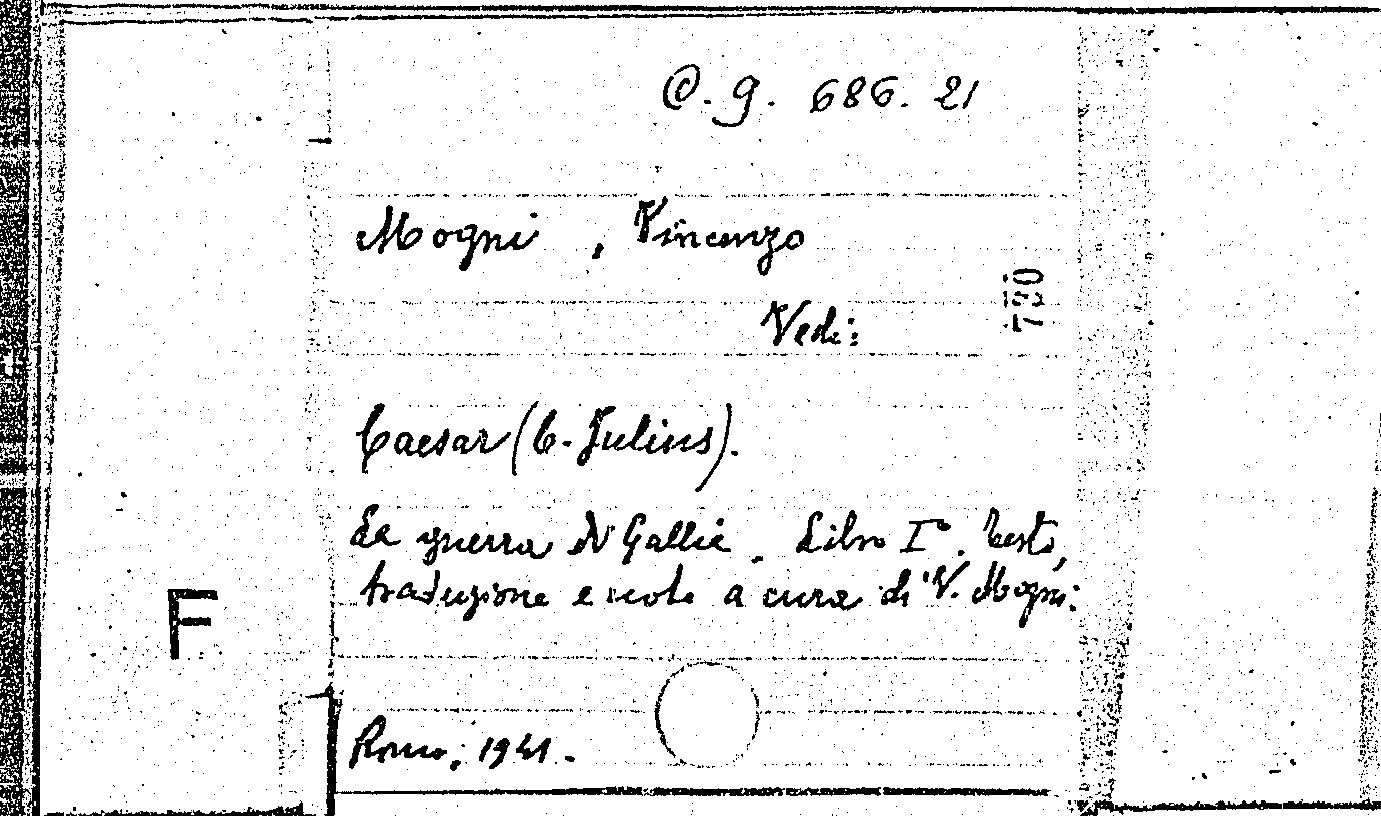 @. g. 686. 21
Mogni, Vincenzo
780
Vedi:
Caesar (C. Julius).
La guerra di Gallia. Libro I°. Testo,
traduzione e note a cura di V. Mogni.
F
Roma, 1941.